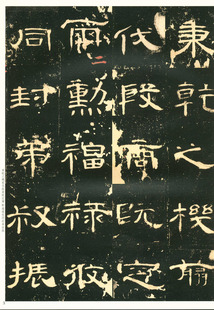 秉乾之機翦
伐殷商既定
爾勳福祿攸
同封弟叔振